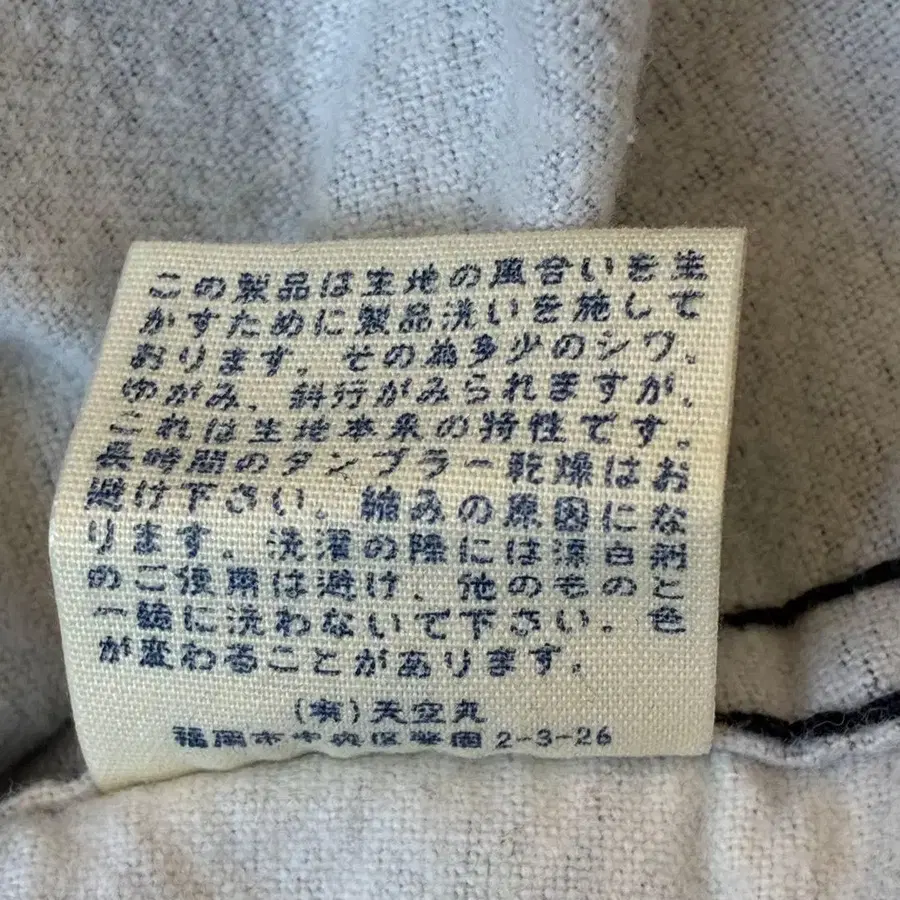 この製品は生地の風合いを生
かすために製品洗いを施して
おります。その為多少のシワ、
ゆがみ、斜行がみられますが、
これは生地本来の特性です。
長時間のタンブラー乾燥はお
避け下さい。縮みの原因にな
ります。洗濯の際には漂白剤
のご使用は避け、他のものと
一緒に洗わないで下さい。色
が変わることがあります。
(有)天空丸
福岡市中央区 2-3-26